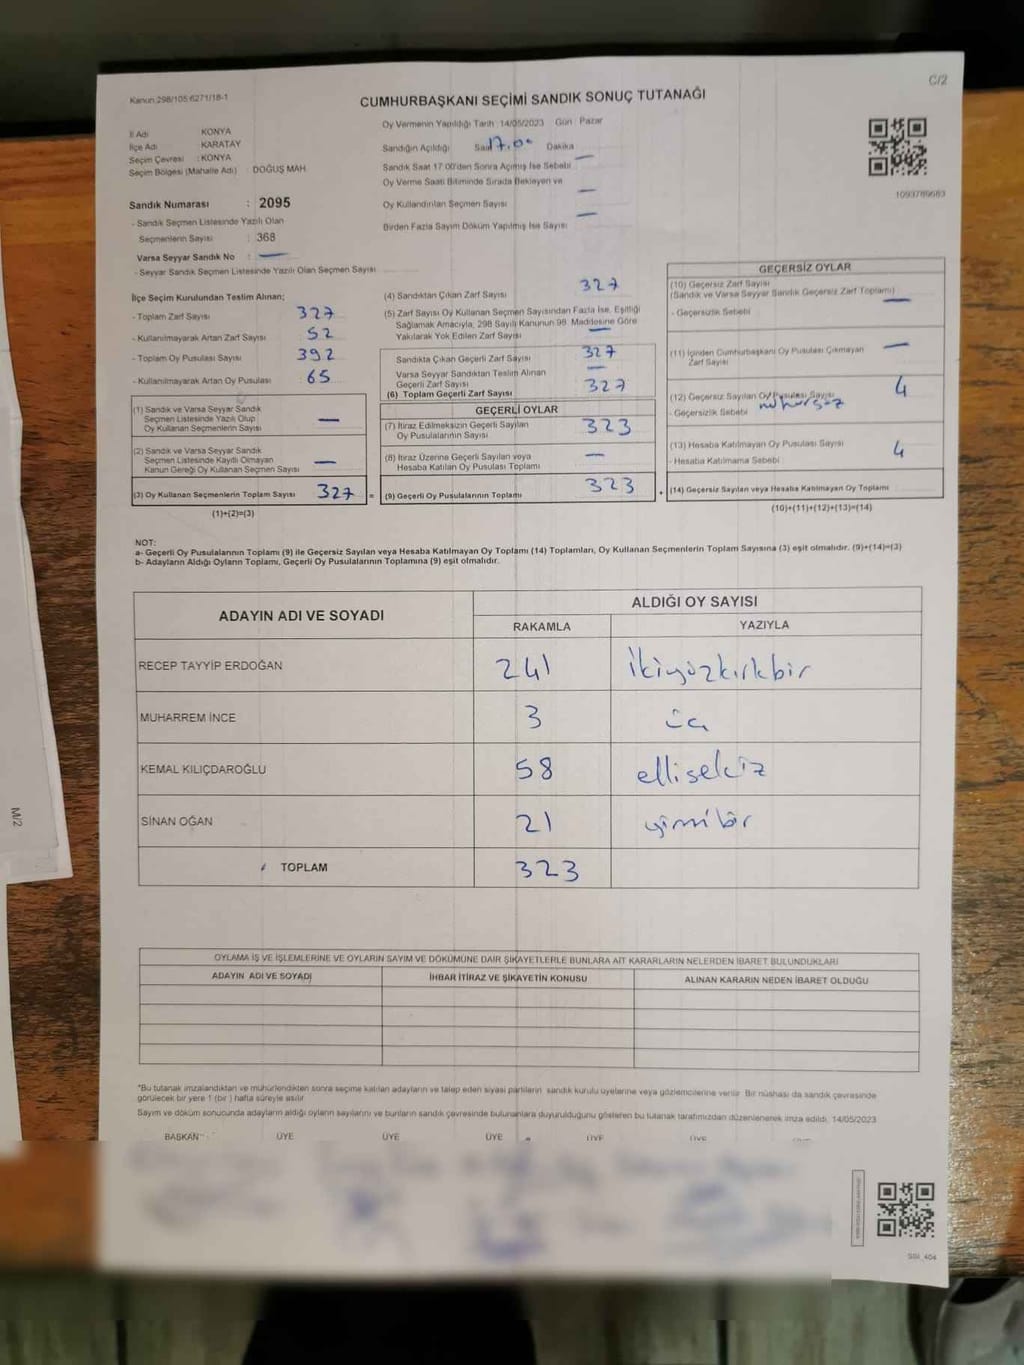 C/2
Kanun:298/105 6271/18-1
CUMHURBAŞKANI SEÇİMİ SANDIK SONUÇ TUTANAĞI
İl Adı : KONYA
İlçe Adı : KARATAY
Seçim Çevresi : KONYA
Seçim Bölgesi (Mahalle Adı) : DOĞUŞ MAH.
Sandık Numarası : 2095
- Sandık Seçmen Listesinde Yazılı Olan
Seçmenlerin Sayısı : 368
Varsa Seyyar Sandık No : —
- Seyyar Sandık Seçmen Listesinde Yazılı Olan Seçmen Sayısı
Oy Vermenin Yapıldığı Tarih : 14/05/2023 Gün : Pazar
Sandığın Açıldığı Saat 17.00 Dakika
Sandık Saat 17:00'den Sonra Açımış İse Sebebi —
Oy Verme Saati Bitiminde Sırada Bekleyen ve
Oy Kullandırılan Seçmen Sayısı —
Birden Fazla Sayım Döküm Yapılmış İse Sayısı —
1093789683
İlçe Seçim Kurulundan Teslim Alınan;
- Toplam Zarf Sayısı : 327
- Kullanılmayarak Artan Zarf Sayısı : 52
- Toplam Oy Pusulası Sayısı : 392
- Kullanılmayarak Artan Oy Pusulası : 65
(1) Sandık ve Varsa Seyyar Sandık
Seçmen Listesinde Yazılı Olup
Oy Kullanan Seçmenlerin Sayısı —
(2) Sandık ve Varsa Seyyar Sandık
Seçmen Listesinde Kayıtlı Olmayan
Kanun Gereği Oy Kullanan Seçmen Sayısı —
(3) Oy Kullanan Seçmenlerin Toplam Sayısı 327 =
(1)+(2)=(3)
(4) Sandıktan Çıkan Zarf Sayısı 327
(5) Zarf Sayısı Oy Kullanan Seçmen Sayısından Fazla İse, Eşitliği
Sağlamak Amacıyla, 298 Sayılı Kanunun 98. Maddesine Göre
Yakılarak Yok Edilen Zarf Sayısı —
Sandıkta Çıkan Geçerli Zarf Sayısı 327
Varsa Seyyar Sandıktan Teslim Alınan
Geçerli Zarf Sayısı —
(6) Toplam Geçerli Zarf Sayısı 327
GEÇERLİ OYLAR
(7) İtiraz Edilmeksizin Geçerli Sayılan
Oy Pusulalarının Sayısı 323
(8) İtiraz Üzerine Geçerli Sayılan veya
Hesaba Katılan Oy Pusulası Toplamı —
(9) Geçerli Oy Pusulalarının Toplamı 323 +
GEÇERSİZ OYLAR
(10) Geçersiz Zarf Sayısı
(Sandık ve Varsa Seyyar Sandık Geçersiz Zarf Toplamı) —
- Geçersizlik Sebebi
(11) İçinden Cumhurbaşkanı Oy Pusulası Çıkmayan
Zarf Sayısı —
(12) Geçersiz Sayılan Oy Pusulası Sayısı 4
- Geçersizlik Sebebi mühürsüz
(13) Hesaba Katılmayan Oy Pusulası Sayısı 4
- Hesaba Katılmama Sebebi
(14) Geçersiz Sayılan veya Hesaba Katılmayan Oy Toplamı
(10)+(11)+(12)+(13)=(14)
NOT:
a- Geçerli Oy Pusulalarının Toplamı (9) ile Geçersiz Sayılan veya Hesaba Katılmayan Oy Toplamı (14) Toplamları, Oy Kullanan Seçmenlerin Toplam Sayısına (3) eşit olmalıdır. (9)+(14)=(3)
b- Adayların Aldığı Oyların Toplamı, Geçerli Oy Pusulalarının Toplamına (9) eşit olmalıdır.
ADAYIN ADI VE SOYADI ALDIĞI OY SAYISI
RAKAMLA YAZIYLA
RECEP TAYYİP ERDOĞAN 241 ikiyüzkırkbir
MUHARREM İNCE 3 üç
KEMAL KILIÇDAROĞLU 58 ellisekiz
SİNAN OĞAN 21 yirmibir
TOPLAM 323
M/2
OYLAMA İŞ VE İŞLEMLERİNE VE OYLARIN SAYIM VE DÖKÜMÜNE DAİR ŞİKAYETLERLE BUNLARA AİT KARARLARIN NELERDEN İBARET BULUNDUKLARI
ADAYIN ADI VE SOYADI İHBAR İTİRAZ VE ŞİKAYETİN KONUSU ALINAN KARARIN NEDEN İBARET OLDUĞU
*Bu tutanak imzalandıktan ve mühürlendikten sonra seçime katılan adayların ve talep eden siyasi partilerin sandık kurulu üyelerine veya gözlemcilerine verilir. Bir nüshası da sandık çevresinde
görülecek bir yere 1 (bir) hafta süreyle asılır.
Sayım ve döküm sonucunda adayların aldığı oyların sayılarını ve bunların sandık çevresinde bulunanlara duyurulduğunu gösteren bu tutanak tarafımızdan düzenlenerek imza edildi. 14/05/2023
BAŞKAN ÜYE ÜYE ÜYE ÜYE ÜYE